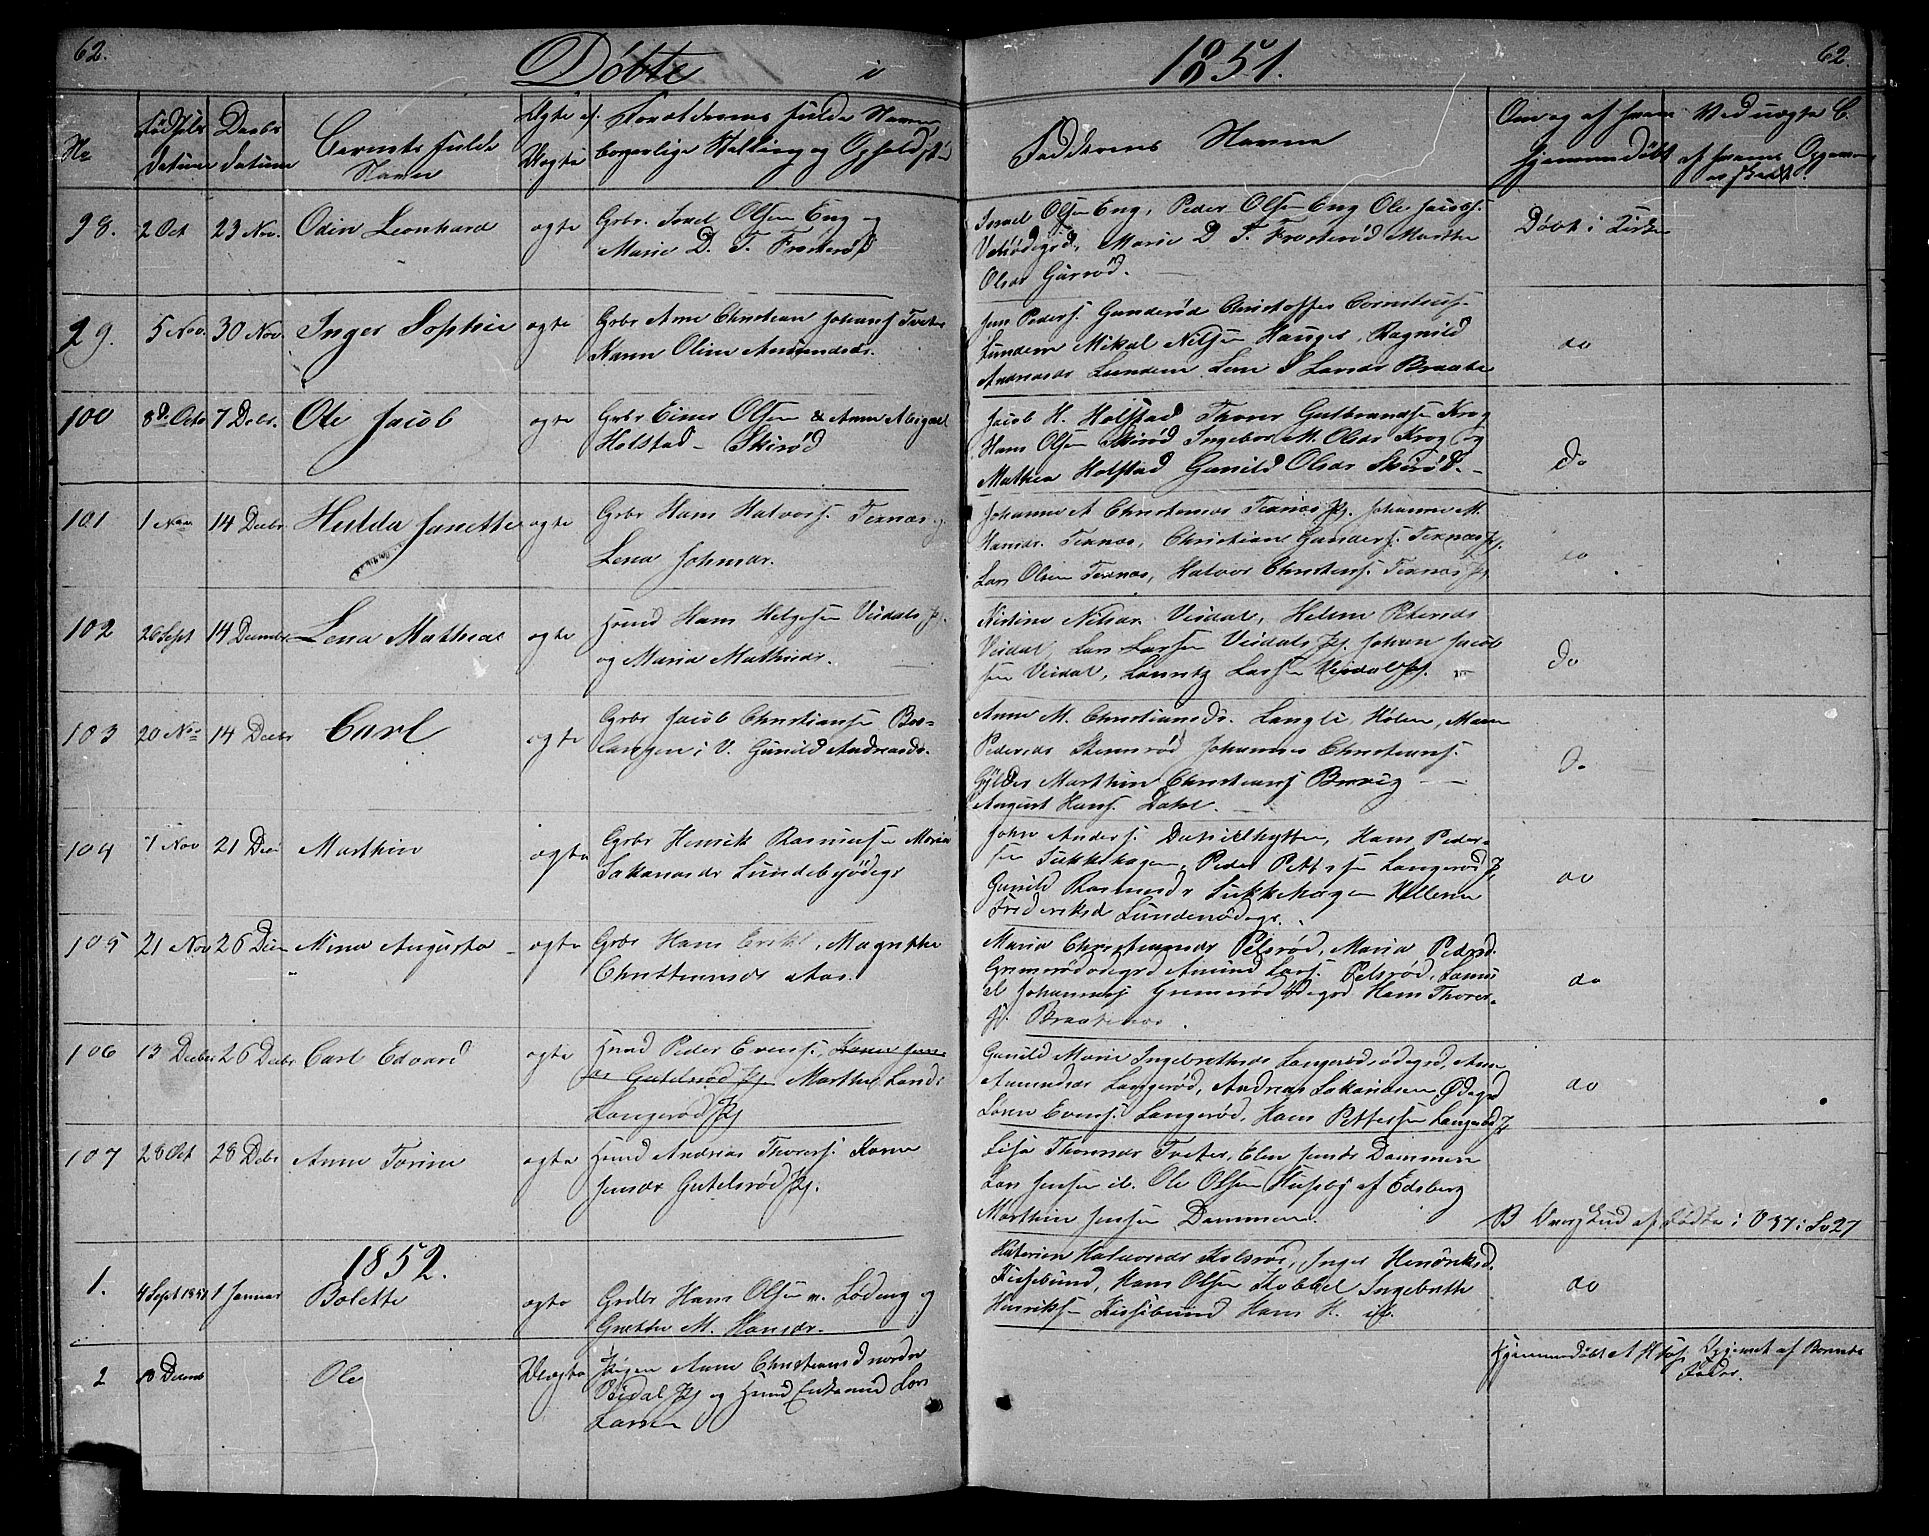 62.
Døbte i 1851.
62.
No
Fødsels Datum
Daabs Datum
Barnets fulde Navn
Ægte el. Uægte
Forældrenes fulde Navne, borgerlige Stilling og Opholdst.
Faddernes Navne
Om og af hvem hjemmedøbt
Ved uægte B. af hvem Opgivn.
98. 2 Oct 23 Nov. Odin Leonhard ægte Grbr. Israel Olsen Eng og
Marie D. T. Frosterød
Israel Olsen Eng, Peder Olsen Eng Ole Jacobs.
Marie D. T. Frosterød Marthe
Olsdr Garrød.
Døbt i Kirke
99. 5 Nov. 30 Nov. Inger Sophie ægte Grbr Arne Christian Johans. Tveter
Karen Olim Amundsdr.
Jens Peders. Gunderød Christoffer Cornelius.
Lundene Mikal Nilsen Hauger, Ragnild
Andreasdr Lundene Lene S Larsdr Braate
do
100 8de Octo 7 Debr. Ole Jacob ægte Grbr Einer Olsen & Anne Abigael
Holstad Skirød
Jacob H. Holstad Thorer Gulbrandsen Krog
Hans Olsen Skirød Ingebor M. Olsdr Krog og
Mathea Holstad Gunild Olsdr Skirød.
do
101 1 Nov 14 Decbr Hulda Janette ægte Grbr Hans Halvors. Texnæs og
Lena Johnsdr.
Johanne A Christensdr Texnæs Johanne M.
Hansdr. Texnæs, Christian Gunders. Texnæs
Lars Olsen Texnæs, Halvor Christens. Texnæs
do
102 26 Sept 14 Decembr Lena Mathea ægte Huusmd Hans Helgesen Veidals
og Maria Mathisdr.
Kirstine Nilsdr. Veidal, Helene Petersdr
Veidal, Lars Larsen Veidals Johan Jacob
sen Veidal, Lauritz Larsen Veidals
do
103 20 Nov 14 Decbr Carl ægte Grbr Jacob Christianse Bør-
langen i V. Gunild Andreasdr.
Anne M. Christiansdr. Langli, Holen, Maren
Pedersdr Stensrød Johannes Christians.
Gylder Marthin Christians Brevig
August Hans. Dahl.
do
104 7 Nov 21 Dec Marthin ægte Grbr Henrik Rasmusen Maria
Sakariasdr Lundebyødegr
John Anders. Danielhytten, Hans Peder-
sen Sukkehagen, Peder Pettersen Langerød
Gunild Rasmusdr Sukkehagen Ellena
Frederiksd Lundenødegr.
do
105 21 Nov 26 Decm Nina Augusta ægte Grbr Hans Eriks. Magrethe
Christiansdr Aas.
Maria Christiansdr Pelsrød, Maria Pedersd.
Grimsrødødegrd Amund Lars. Pelsrød, Samu
el Johannes Grimsrød Ødegrd Hans Thorer-
s. Braatenæs.
do
106 13 Decbr 26 Decbr Carl Edvard ægte Huusmd Peder Evens.
Gutelsrød Marthe Larsdr
Langerød
Gunild Marie Ingebrethsdr Langerødsødegrd, Anne
Amundsdr Langerød, Andreas Sakariasen Ødegrd
Søren Evens. Langerød, Hans Pettersen Langerød
do
107 28 Oct 28 Debr Anne Torine ægte Huusmd Andreas Thorers. Karen
Jensdr Gutelsrød
Lisa Thomasdr Tveter, Elen Jensdr Dammen
Lars Jensen ib. Ole Olsen Huseby af Edsberg
Marthin Jensen Dammen.
B Overskud af Fødte i 37 i 27
1852.
1. 4 Sept 1851 1 Januar Bolette ægte Grdbr Hans Olsen n. Lødeng og
Grethe M. Hansdr.
Katerine Halvorsdr Kolsrød, Inger Henriksd.
Kirsebund, Hans Olsen Kobbel Ingebreth
Henriksen Kirsebund Hans H. ib.
do
2 13 Decmb Ole Uægte Pigen Anne Christiansd nordre
Veidal og Huusmd Enkemd Lars
Larsen
Hjemmedøbt
Opgivet af Barnets
Fader.